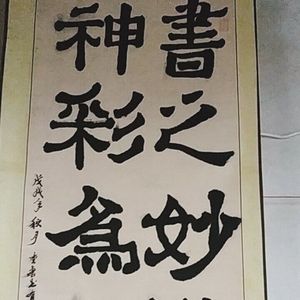 書之妙
神彩為
戊戌年秋月